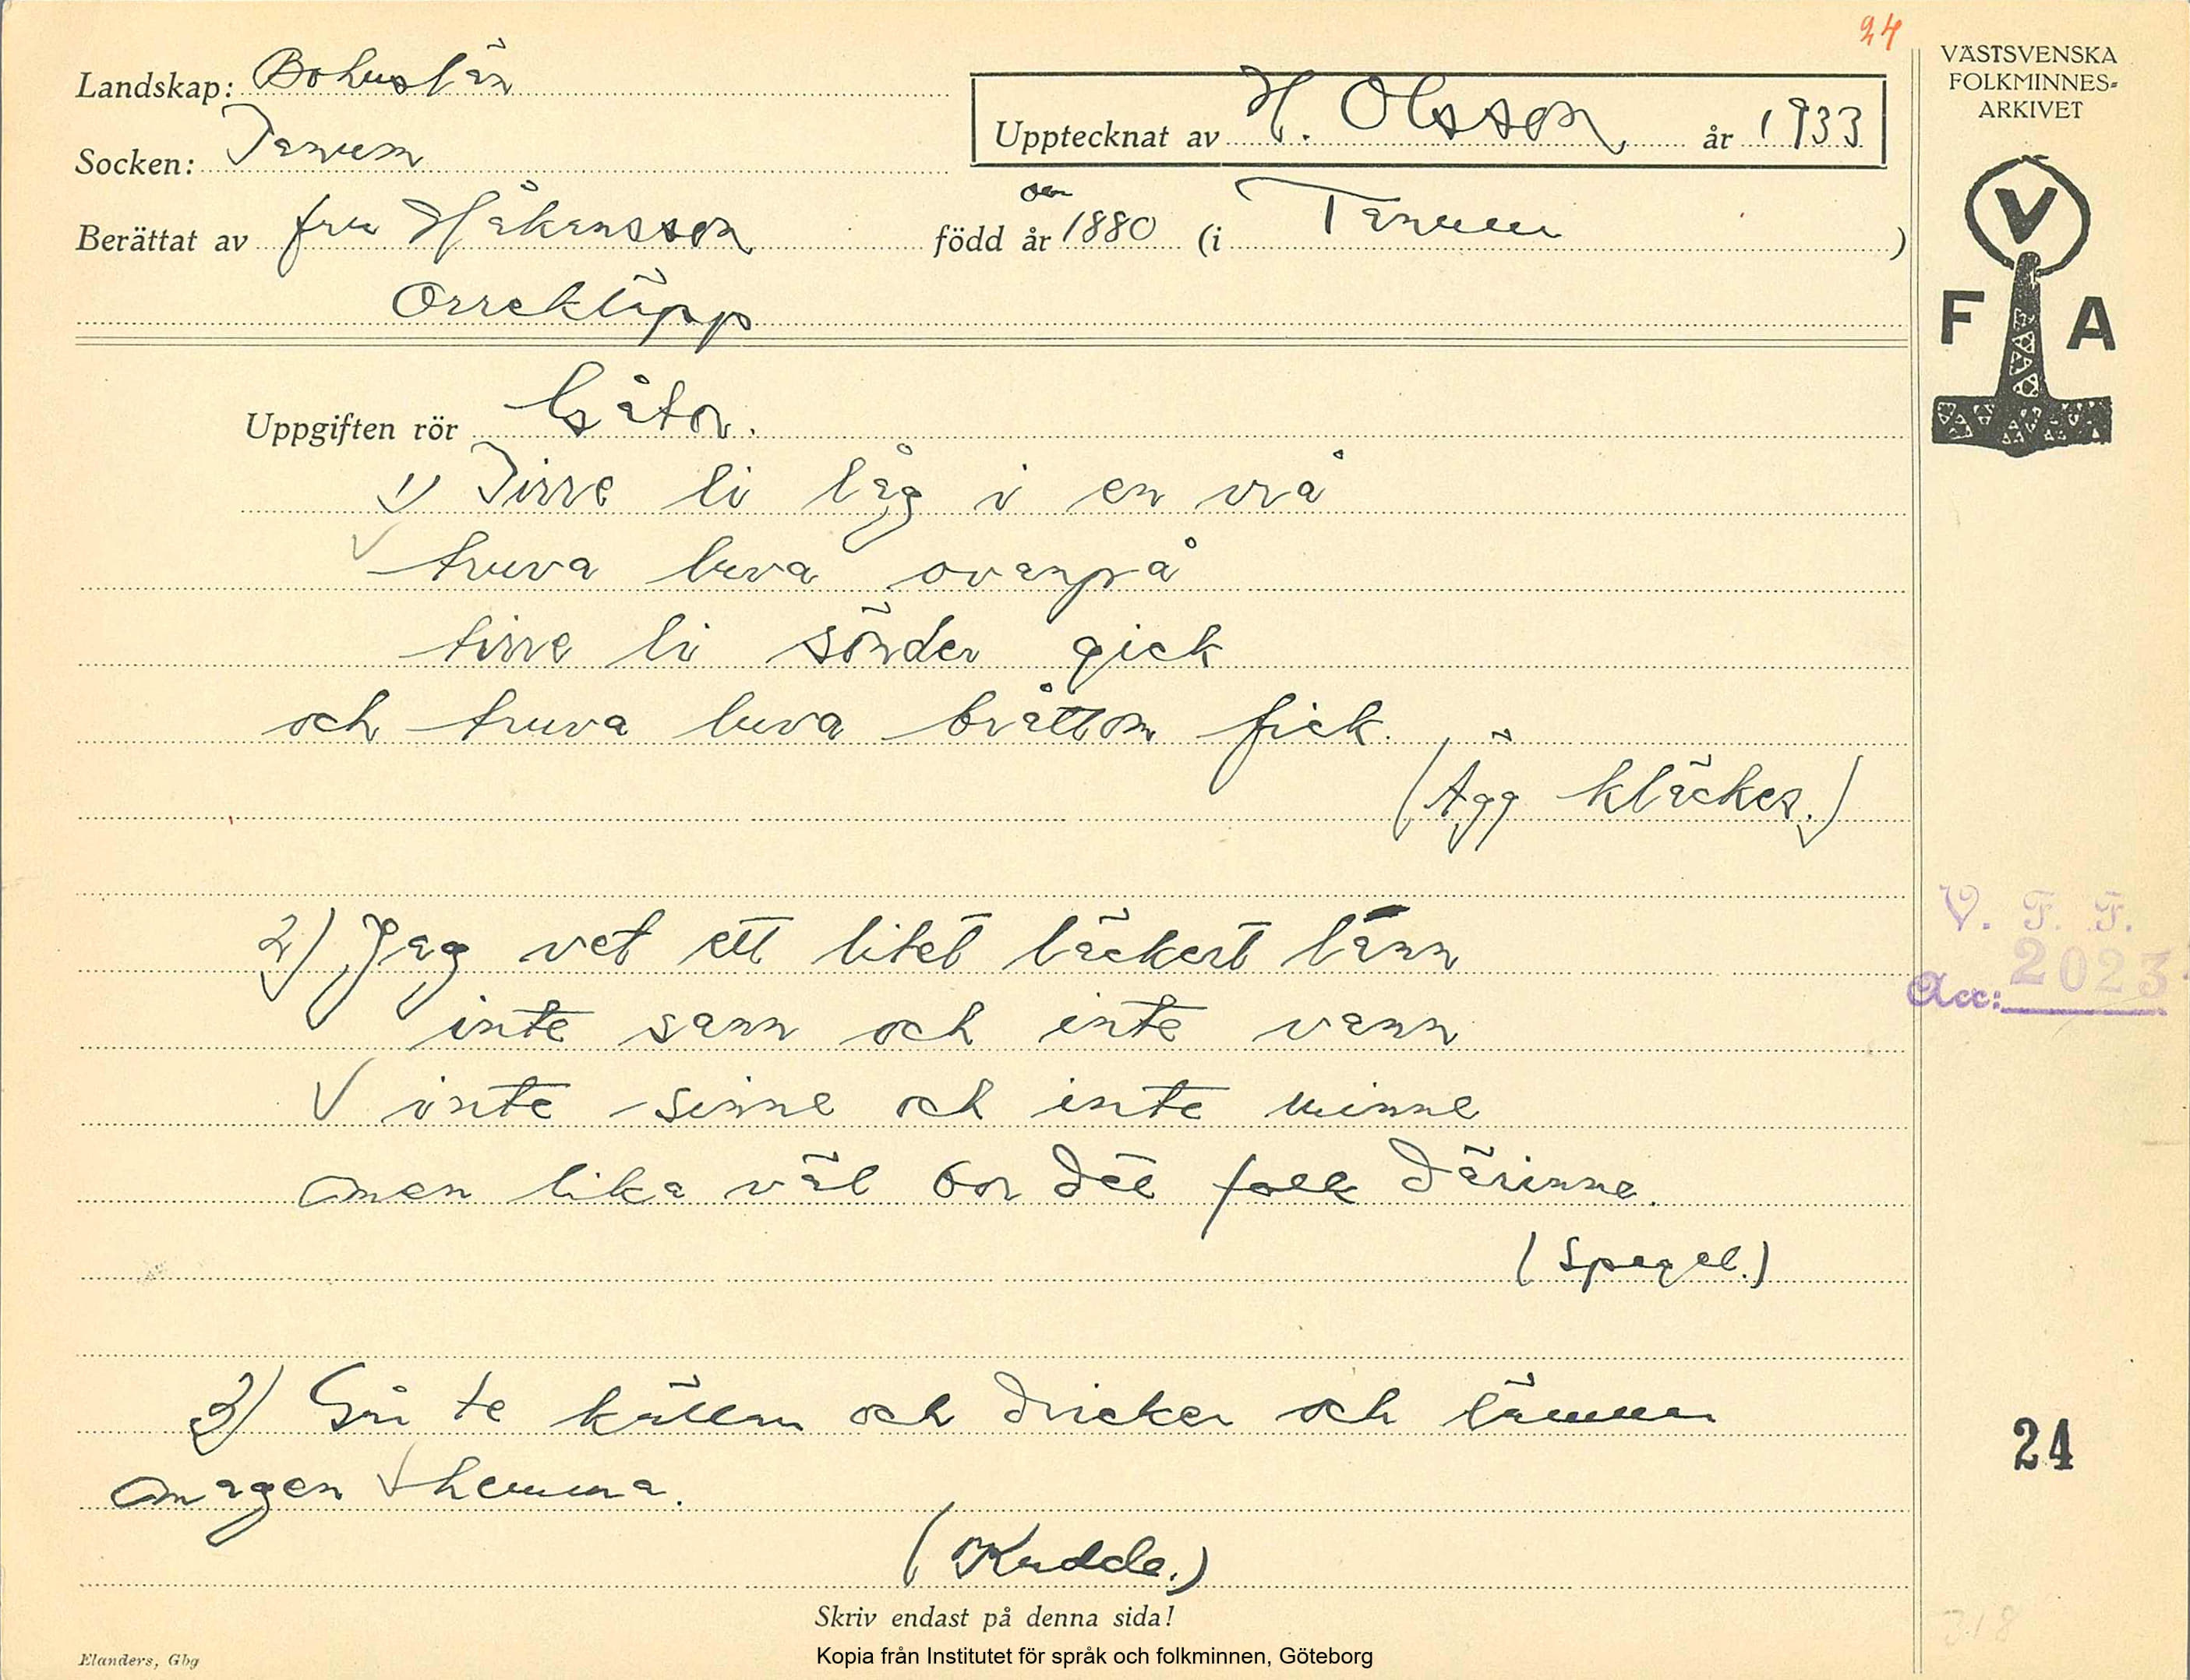 24
Landskap: Bohuslän
VÄSTSVENSKA
FOLKMINNES-
ARKIVET
Upptecknat av H. Olsson, år 1933
Socken: Tanum
Berättat av fru Håkansson född år 1880 (i Tanum)
om
Orrekläpp
V
F A
Uppgiften rör Gåtor.
1) Tirre li låg i en vrå
truva luva ovanpå
tirre li sönder gick
och truva luva bråttom fick.
(Ägg kläckes.)
2) Jag vet ett litet läckert länn
inte sann och inte vann
inte sinne och inte minne
men lika väl bor det folk därinne.
(Spegel.)
V. F. F.
Acc: 2023
3) Går te källan och dricker och lämnar
magen hemma.
(Kudde.)
24
Skriv endast på denna sida!
318
Elanders, Gbg
Kopia från Institutet för språk och folkminnen, Göteborg